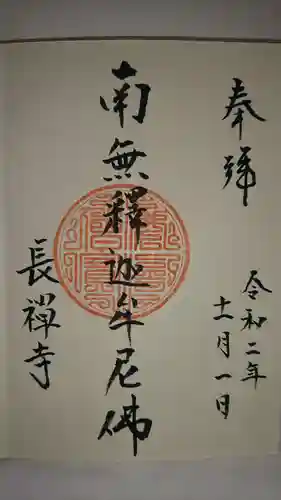 奉拝
令和二年
十一月一日
南無釋迦牟尼佛
長禅寺